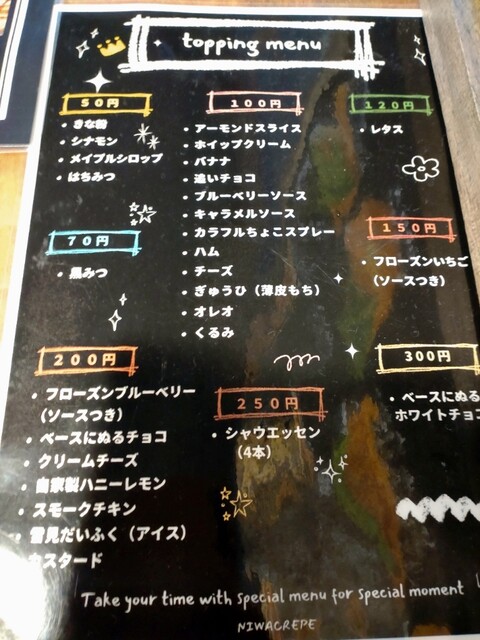 topping menu
50円
きな粉
シナモン
メイプルシロップ
はちみつ
70円
黒みつ
100円
アーモンドスライス
ホイップクリーム
バナナ
追いチョコ
ブルーベリーソース
キャラメルソース
カラフルちょこスプレー
ハム
チーズ
ぎゅうひ（薄皮もち）
オレオ
くるみ
120円
レタス
150円
フローズンいちご
（ソースつき）
200円
フローズンブルーベリー
（ソースつき）
ベースにぬるチョコ
クリームチーズ
自家製ハニーレモン
スモークチキン
雪見だいふく（アイス）
カスタード
250円
シャウエッセン
（4本）
300円
ベースにぬる
ホワイトチョコ
Take your time with special menu for special moment
NIWACREPE